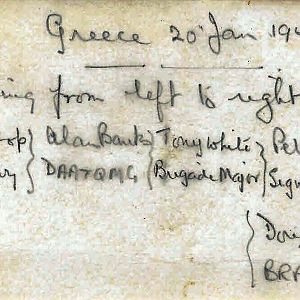 Greece 20 Jan 194
ing from left to right
op } Alan Banks } Tony White } Pet
} DAA+QMG } Brigade Major } Sign
} Dore
BRA